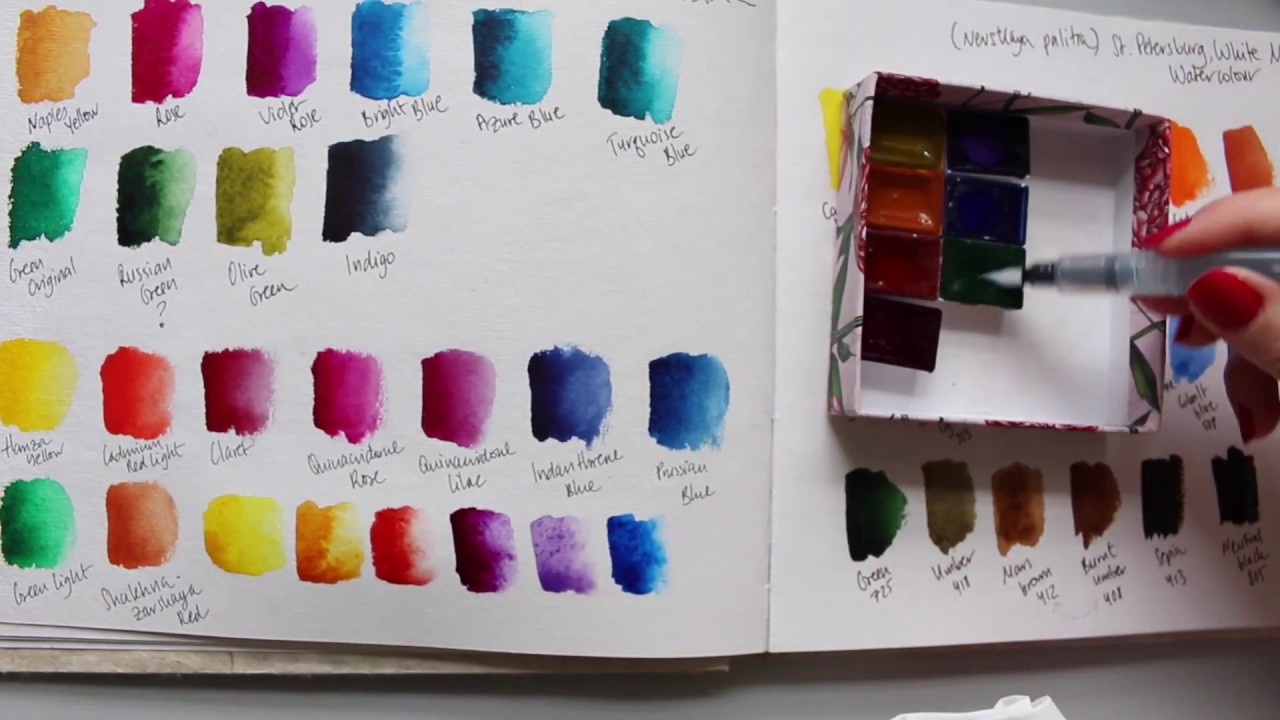 (Nevskaya palitra) St. Petersburg, White
Watercolour
Naples Yellow
Rose
Violet Rose
Bright Blue
Azure Blue
Turquoise Blue
Green Original
Russian Green ?
Olive Green
Indigo
Cobalt blue 508
Hanza Yellow
Cadmium Red Light
Claret
Quinacridone Rose
Quinacridone Lilac
Indanthrene Blue
Prussian Blue
Green Light
Shakhna-
zarskaya
Red
Green 725
Umber 418
Mars brown 412
Burnt umber 408
Sepia 413
Neutral black 805